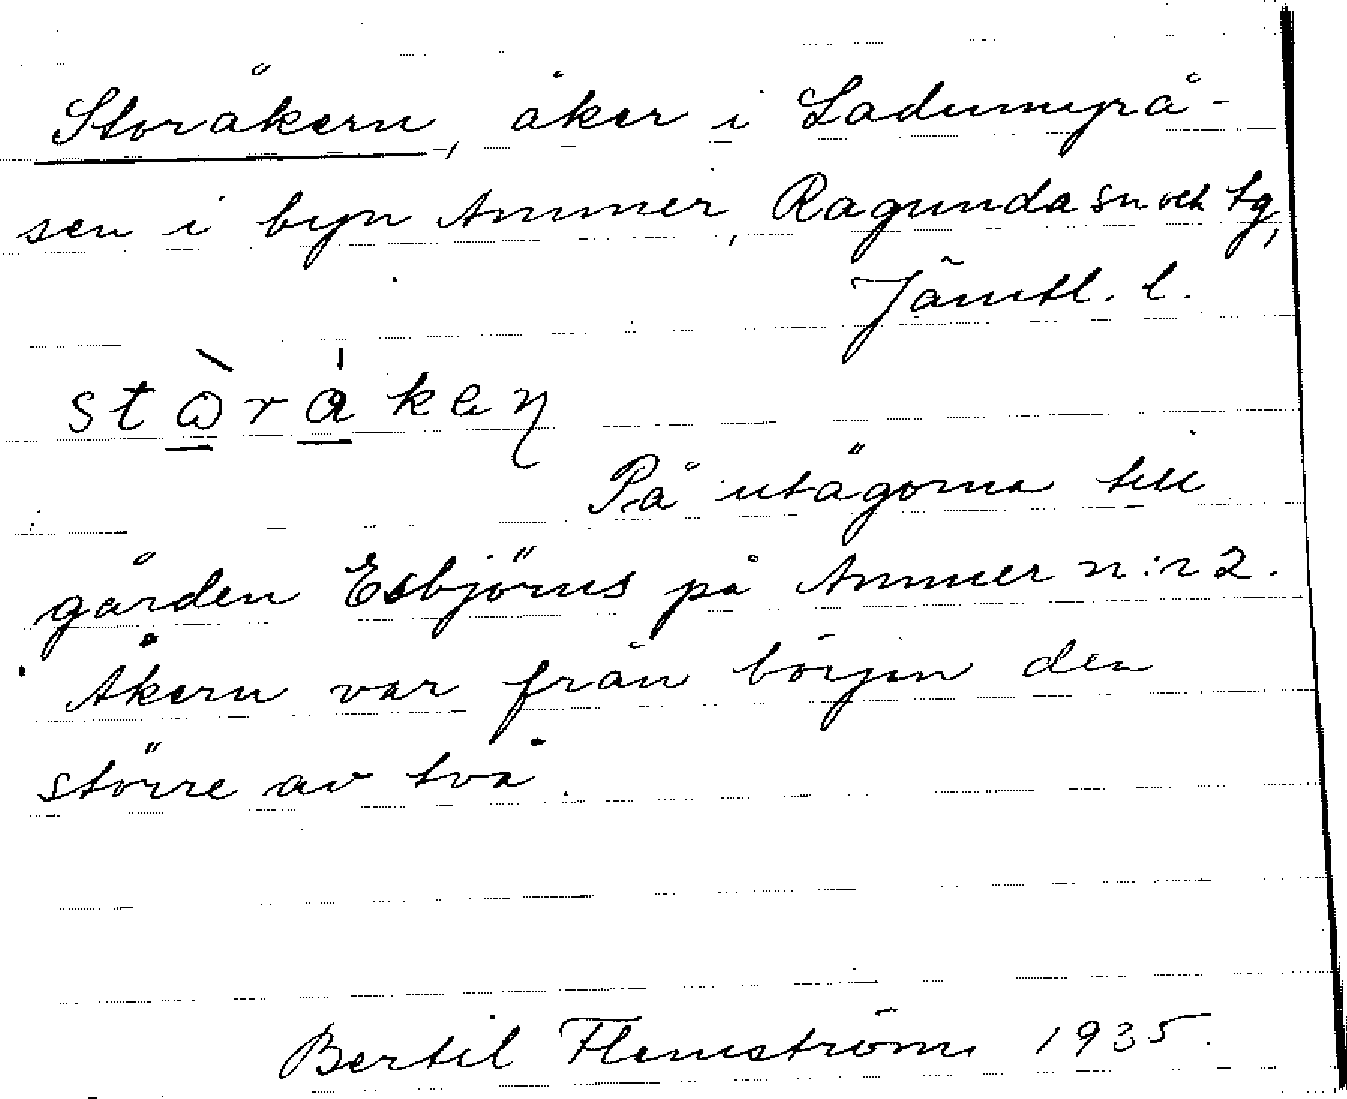 Storåkern, åker i Ladumyrå-
sen i byn Ammer, Ragunda sn och tg,
Jämtl. l.
På utägorna till
gården Esbjörns på Ammer n:r 2.
Åkern var från början den
större av två.
Bertil Flemström 1935.